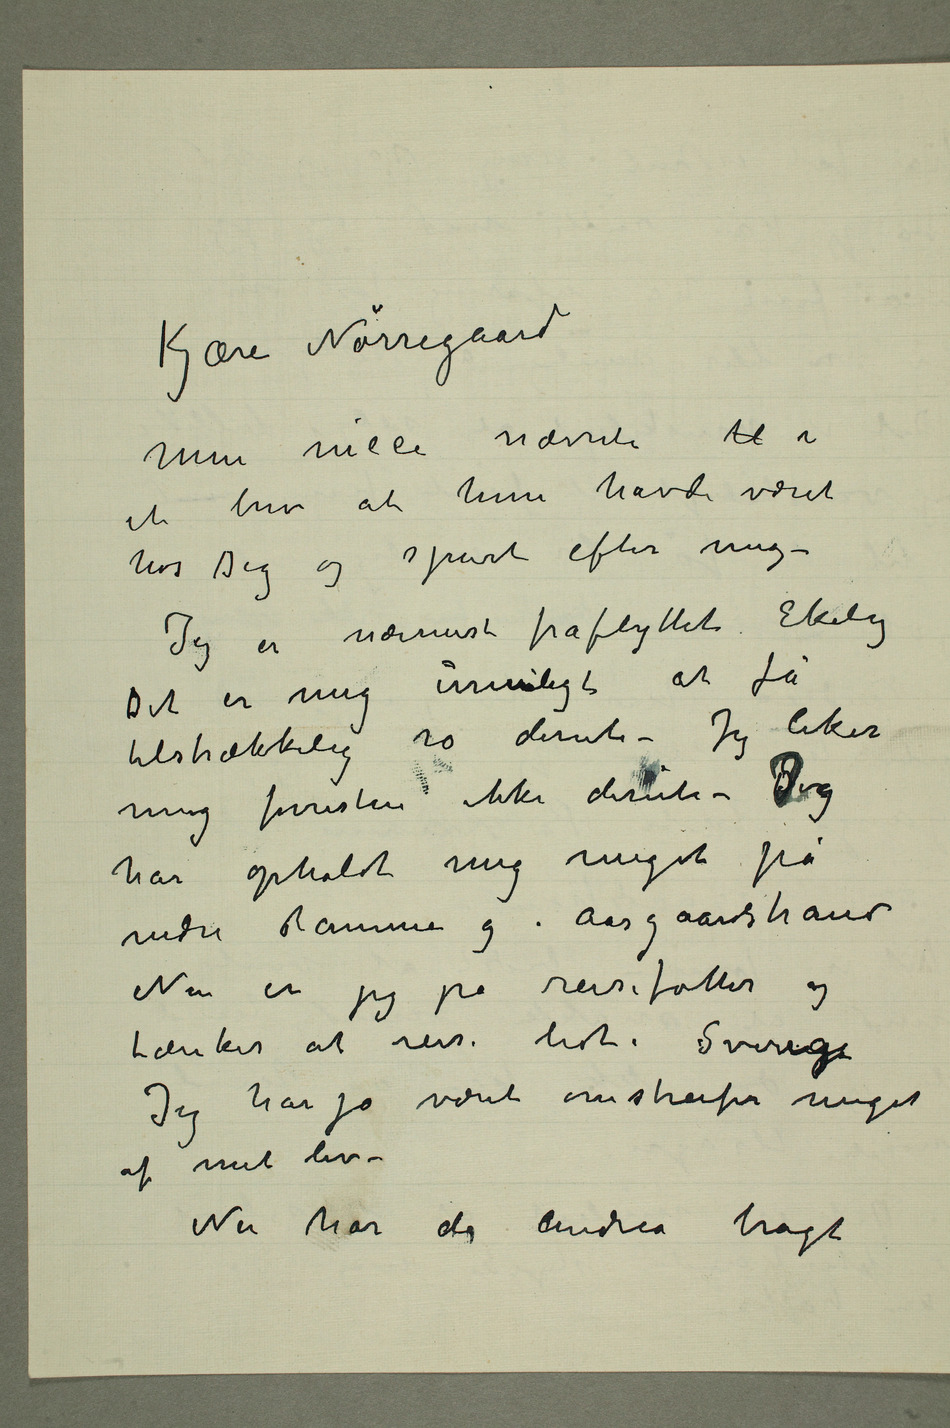 Kjære Nörregaard
Min niece nævnte i
et brev at hun havde været
hos Dig og spurt efter mig –
Jeg er nærmest fraflyttet Ekely
Det er mig umuligt at få
tilstrækkelig ro derute – Jeg liker
mig forresten ikke derute – Jeg
har opholdt mig meget på
nedre Ramme og i Aasgaardstrand
Nu er jeg på reisefötter og
tænker at reise lidt i Sverige
Jeg har jo været omstreifer meget
af mit liv –
Nu har da Andrea bragt